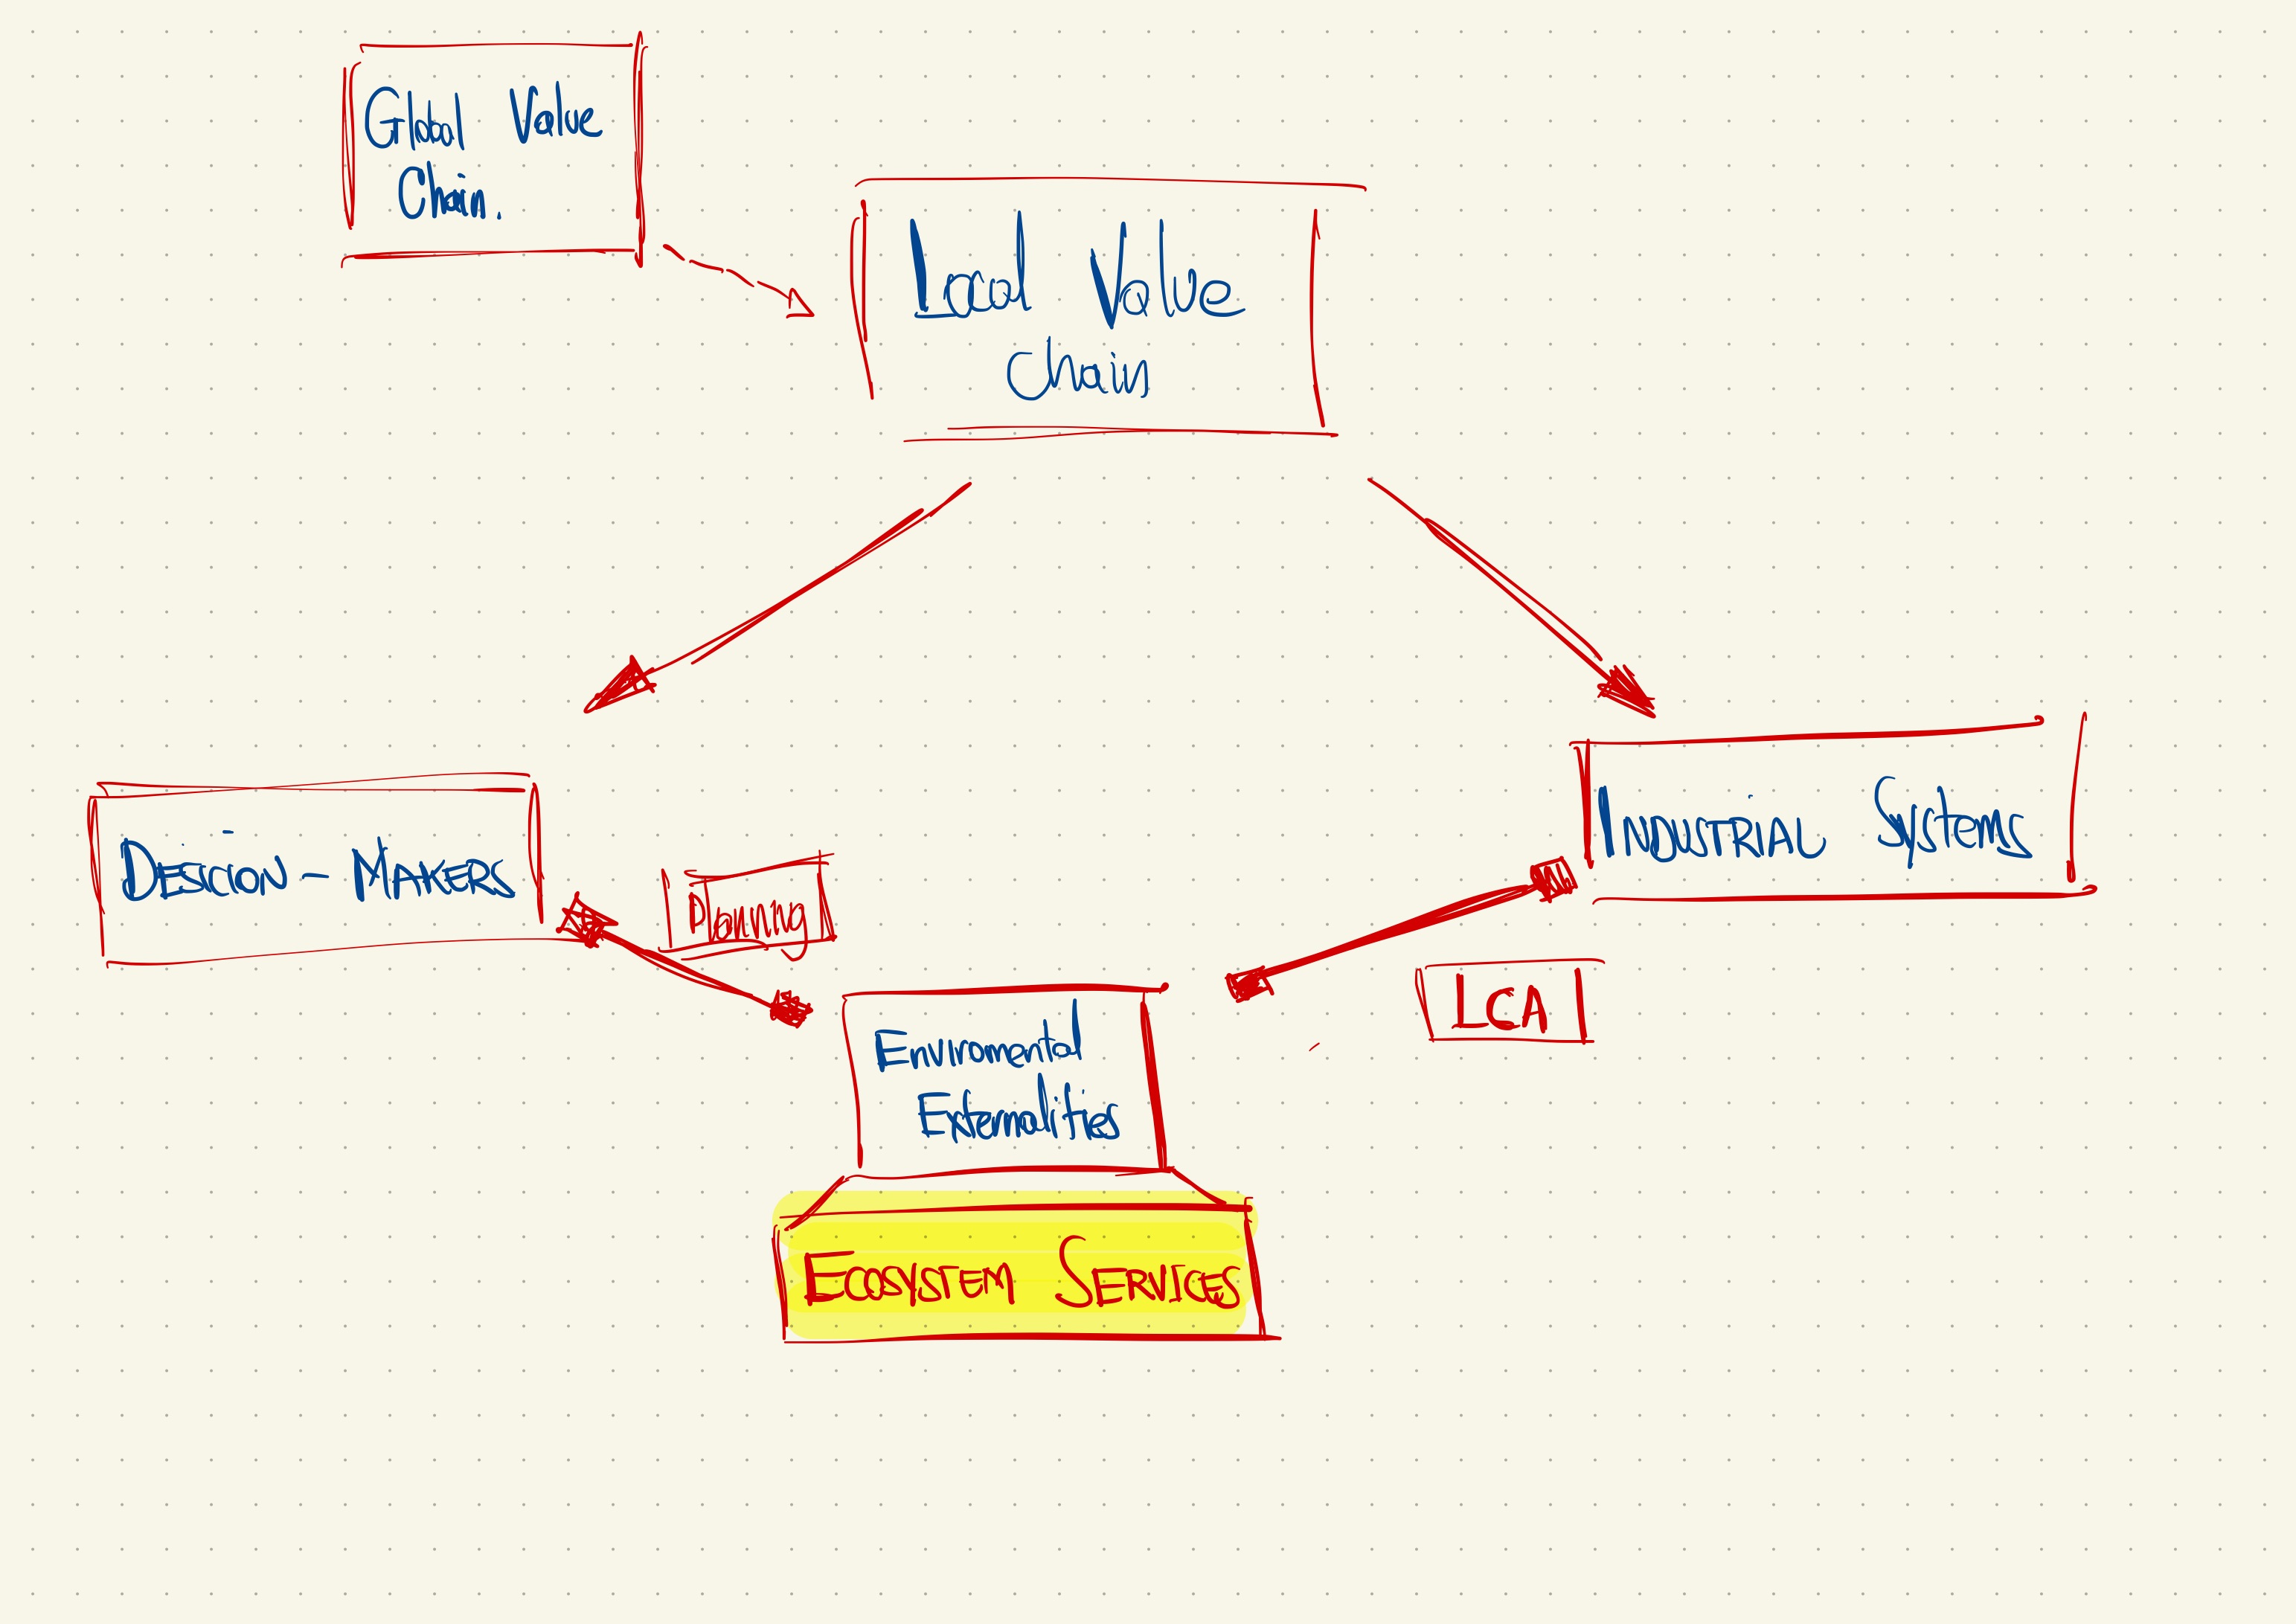 Global Value
Chain.
Local Value
Chain
DESICION - MAKERS
INDUSTRIAL SYSTEMS
Planning
LCA
Enviromental
Externalities
ECOSYSTEM SERVICES